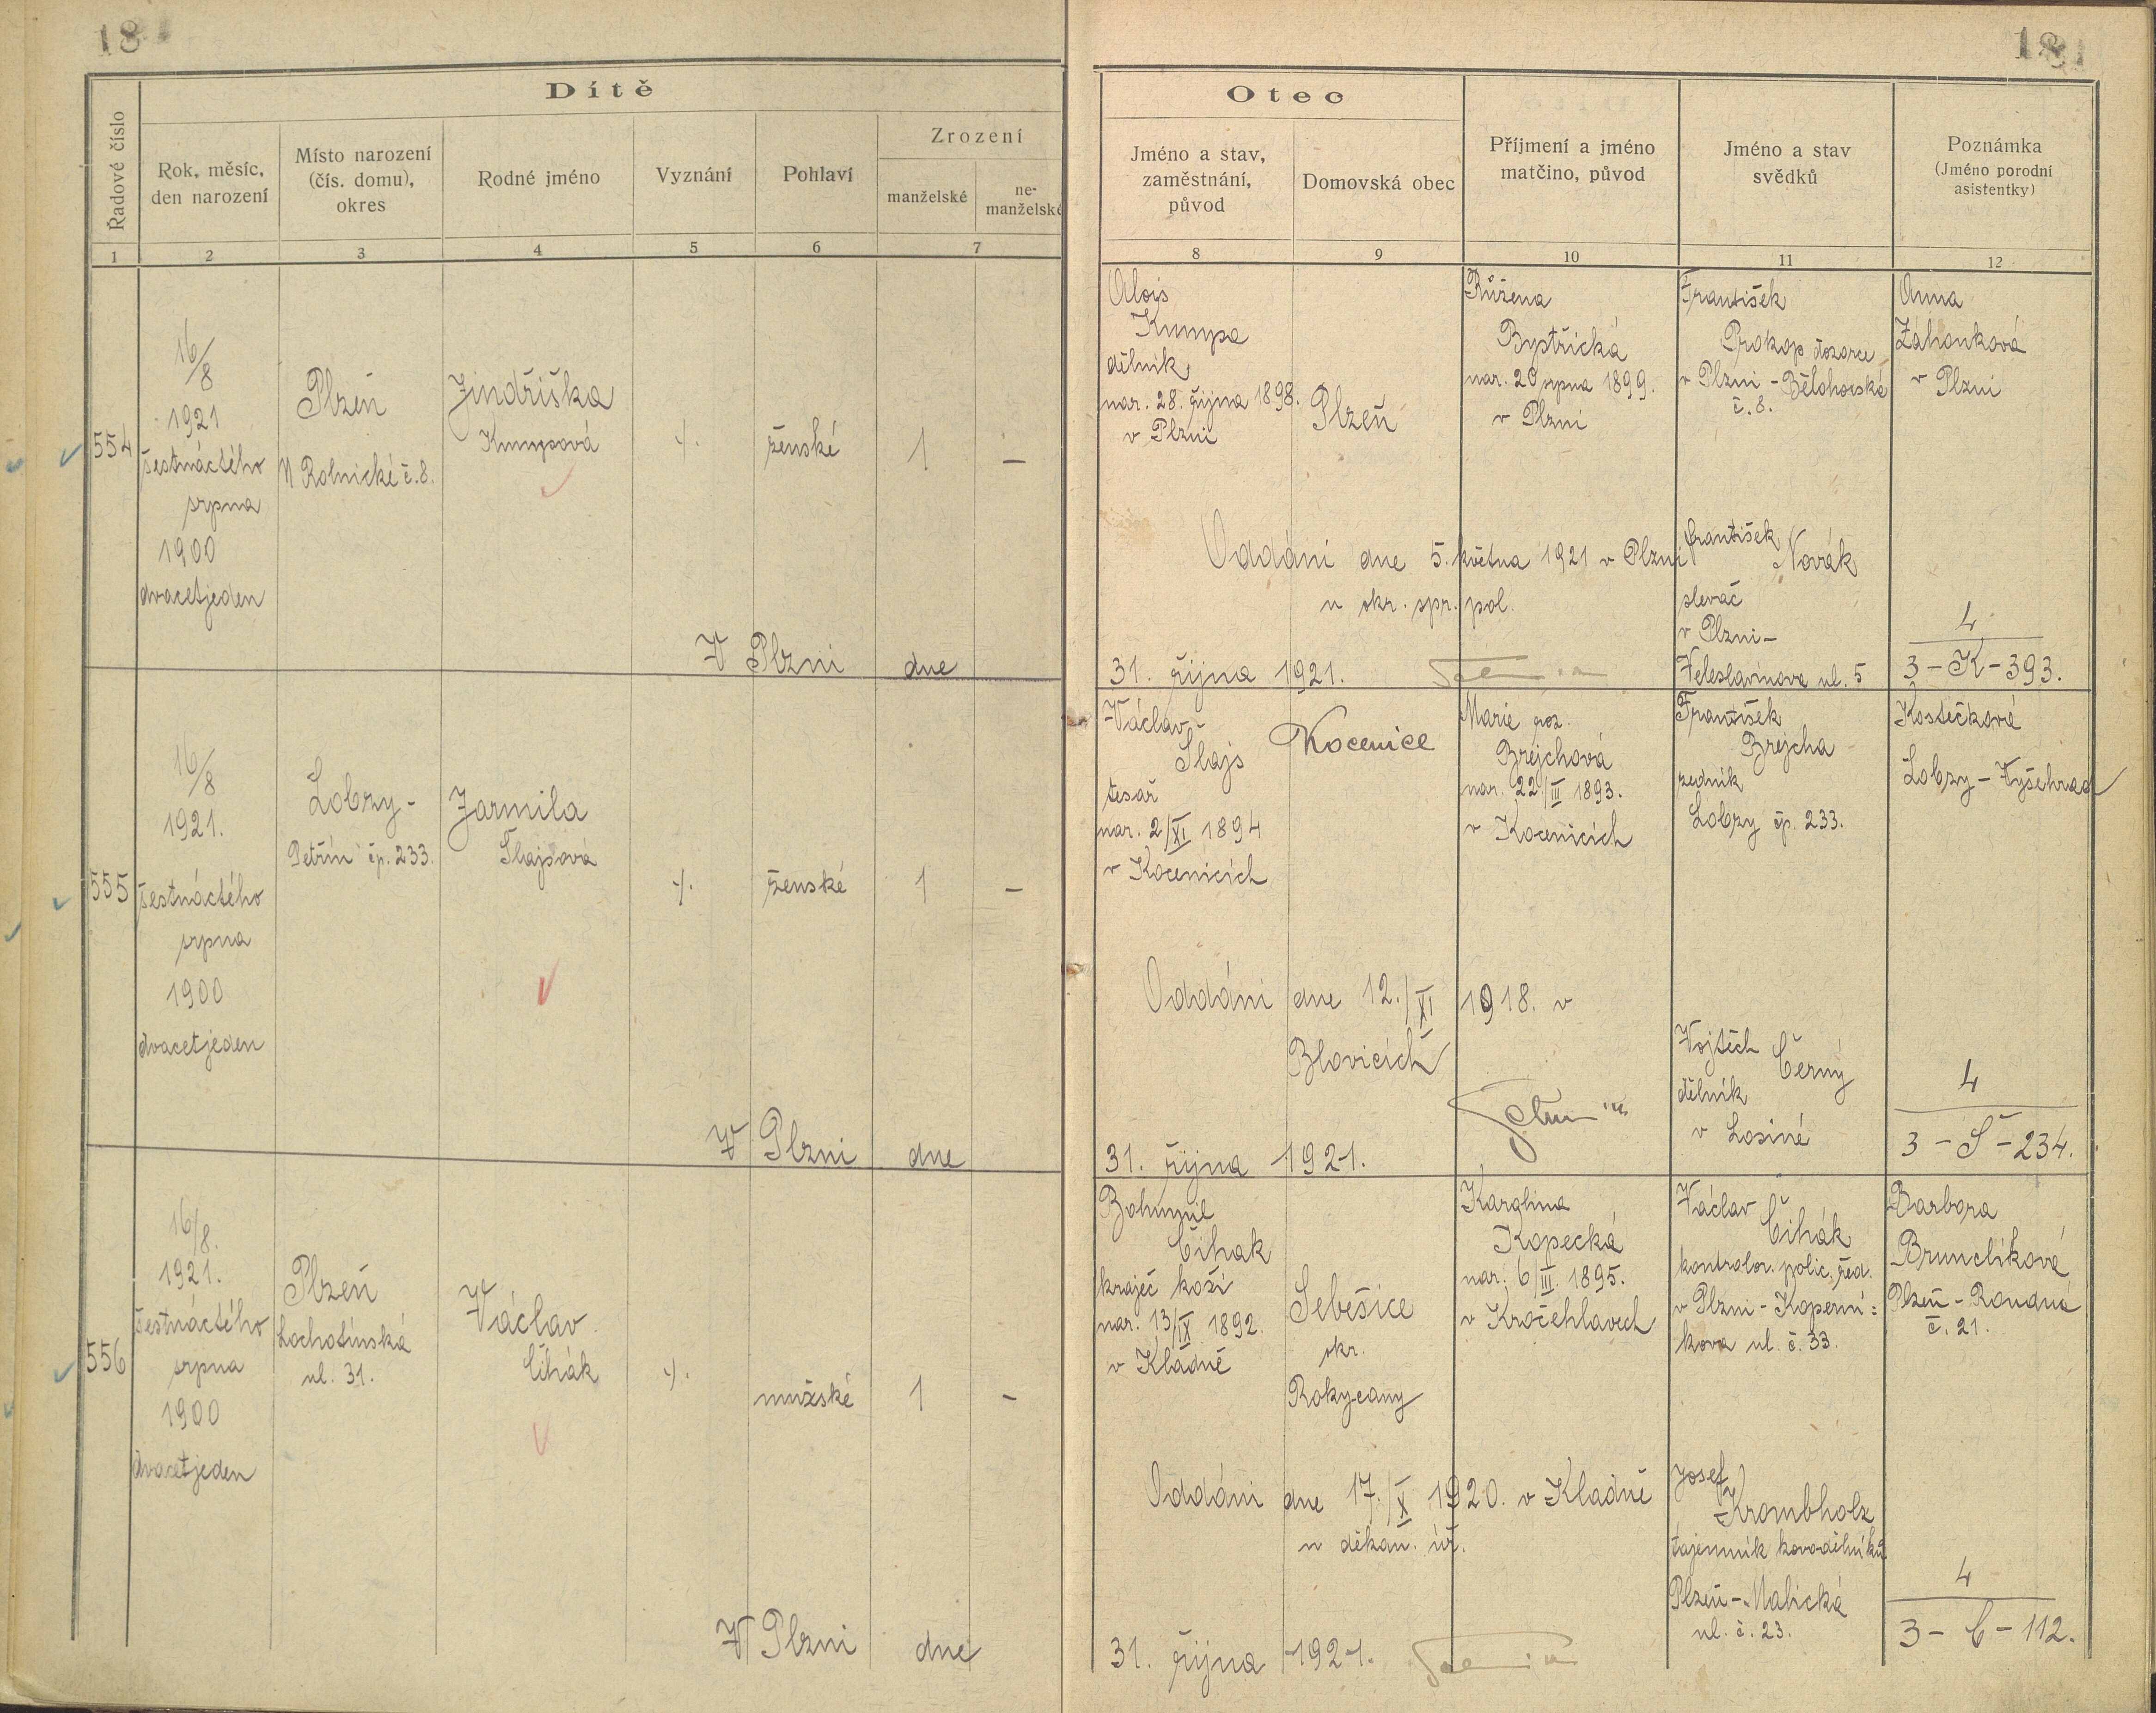 18
181
Dítě
Řadové číslo
Rok, měsíc,
den narození
Místo narození
(čís. domu),
okres
Rodné jméno
Vyznání
Pohlaví
Zrození
manželské
ne-
manželské
1
2
3
4
5
6
7
Otec
Jméno a stav,
zaměstnání,
původ
Domovská obec
Příjmení a jméno
matčino, původ
Jméno a stav
svědků
Poznámka
(Jméno porodní
asistentky)
8
9
10
11
12
554
16/8
1921
šestnáctého
srpna
1900
dvacetjeden
Plzeň
V Rolnické č. 8.
Jindřiška
Kumpová
ženské
1
–
V Plzni dne
Alois
Kumpa
dělník
nar. 28. října 1898.
v Plzni
Plzeň
Růžena
Bystřická
nar. 20 srpna 1899.
v Plzni
František
Prokop dozorce
v Plzni - Bělohorská
č. 8.
Anna
Záhonková
v Plzni
Oddáni dne 5. května 1921 v Plzni
u okr. spr. pol.
František
Novák
slevač
v Plzni –
Veleslavínova ul. 5
4
3 – K – 393.
31. října 1921.
555
16/8
1921.
šestnáctého
srpna
1900
dvacetjeden
Lobzy -
Petřín čp. 233.
Jarmila
Šlajsová
ženské
1
–
V Plzni dne
Václav
Šlajs
tesař
nar. 2/XI 1894
v Kocenicích
Kocenice
Marie roz.
Brejchová
nar. 22/III 1893.
v Kocenicích
František
Brejcha
zedník
Lobzy čp. 233.
Kostečková
Lobzy – Vyšehrad
Oddáni dne 12./XI 1918. v
Blovicích
Vojtěch
Černý
dělník
v Losiné
4
3 – Š – 234.
31. října 1921.
556
16/8.
1921.
šestnáctého
srpna
1900
dvacetjeden
Plzeň
Lochotínská
ul. 31.
Václav
Čihák
mužské
1
–
V Plzni dne
Bohumil
Čihak
kraječ koží
nar. 13/IX 1892.
v Kladně
Sebešice
okr.
Rokycany
Karolina
Kopecká
nar. 6/III. 1895.
v Kročehlavech
Václav
Čihák
kontrolor. polic. řed.
v Plzni - Koperní:
kova ul. č. 33.
Barbora
Brunclíková
Plzeň - Roudná
č. 21.
Oddáni dne 17./X 1920. v Kladně
u děkan. úř.
Josef
Krombholz
tajemník kovodělníků
Plzeň - Malická
ul. č. 23.
4
3 – C – 112.
31. října 1921.